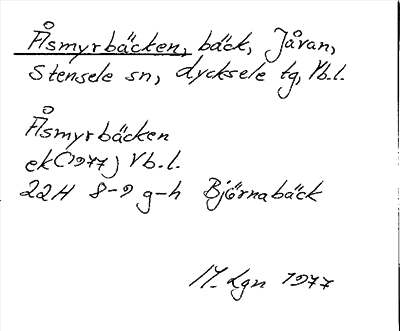 Åsmyrbäcken, bäck, Jåvan,
Stensele sn, Lycksele tg, Vb.l.
Åsmyrbäcken
ek (1977) Vb.l.
22H 8-9 g-h Björnabäck
Lgn 1977